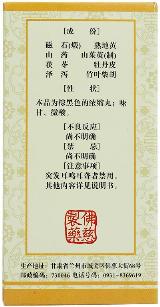 [成 份]
磁 石(煅) 熟地黄
山 药 山茱萸(制)
茯 苓 牡丹皮
泽 泻 竹叶柴胡
[性 状]
本品为棕黑色的浓缩丸；味
甘、微酸。
[不良反应]
尚不明确
[禁 忌]
尚不明确
[注意事项]
突发耳鸣耳聋者禁用。
其他内容详见说明书。
佛慈
生产地址：甘肃省兰州市城关区佛慈大街68号
邮政编码：730046 电话号码：0931-8369619